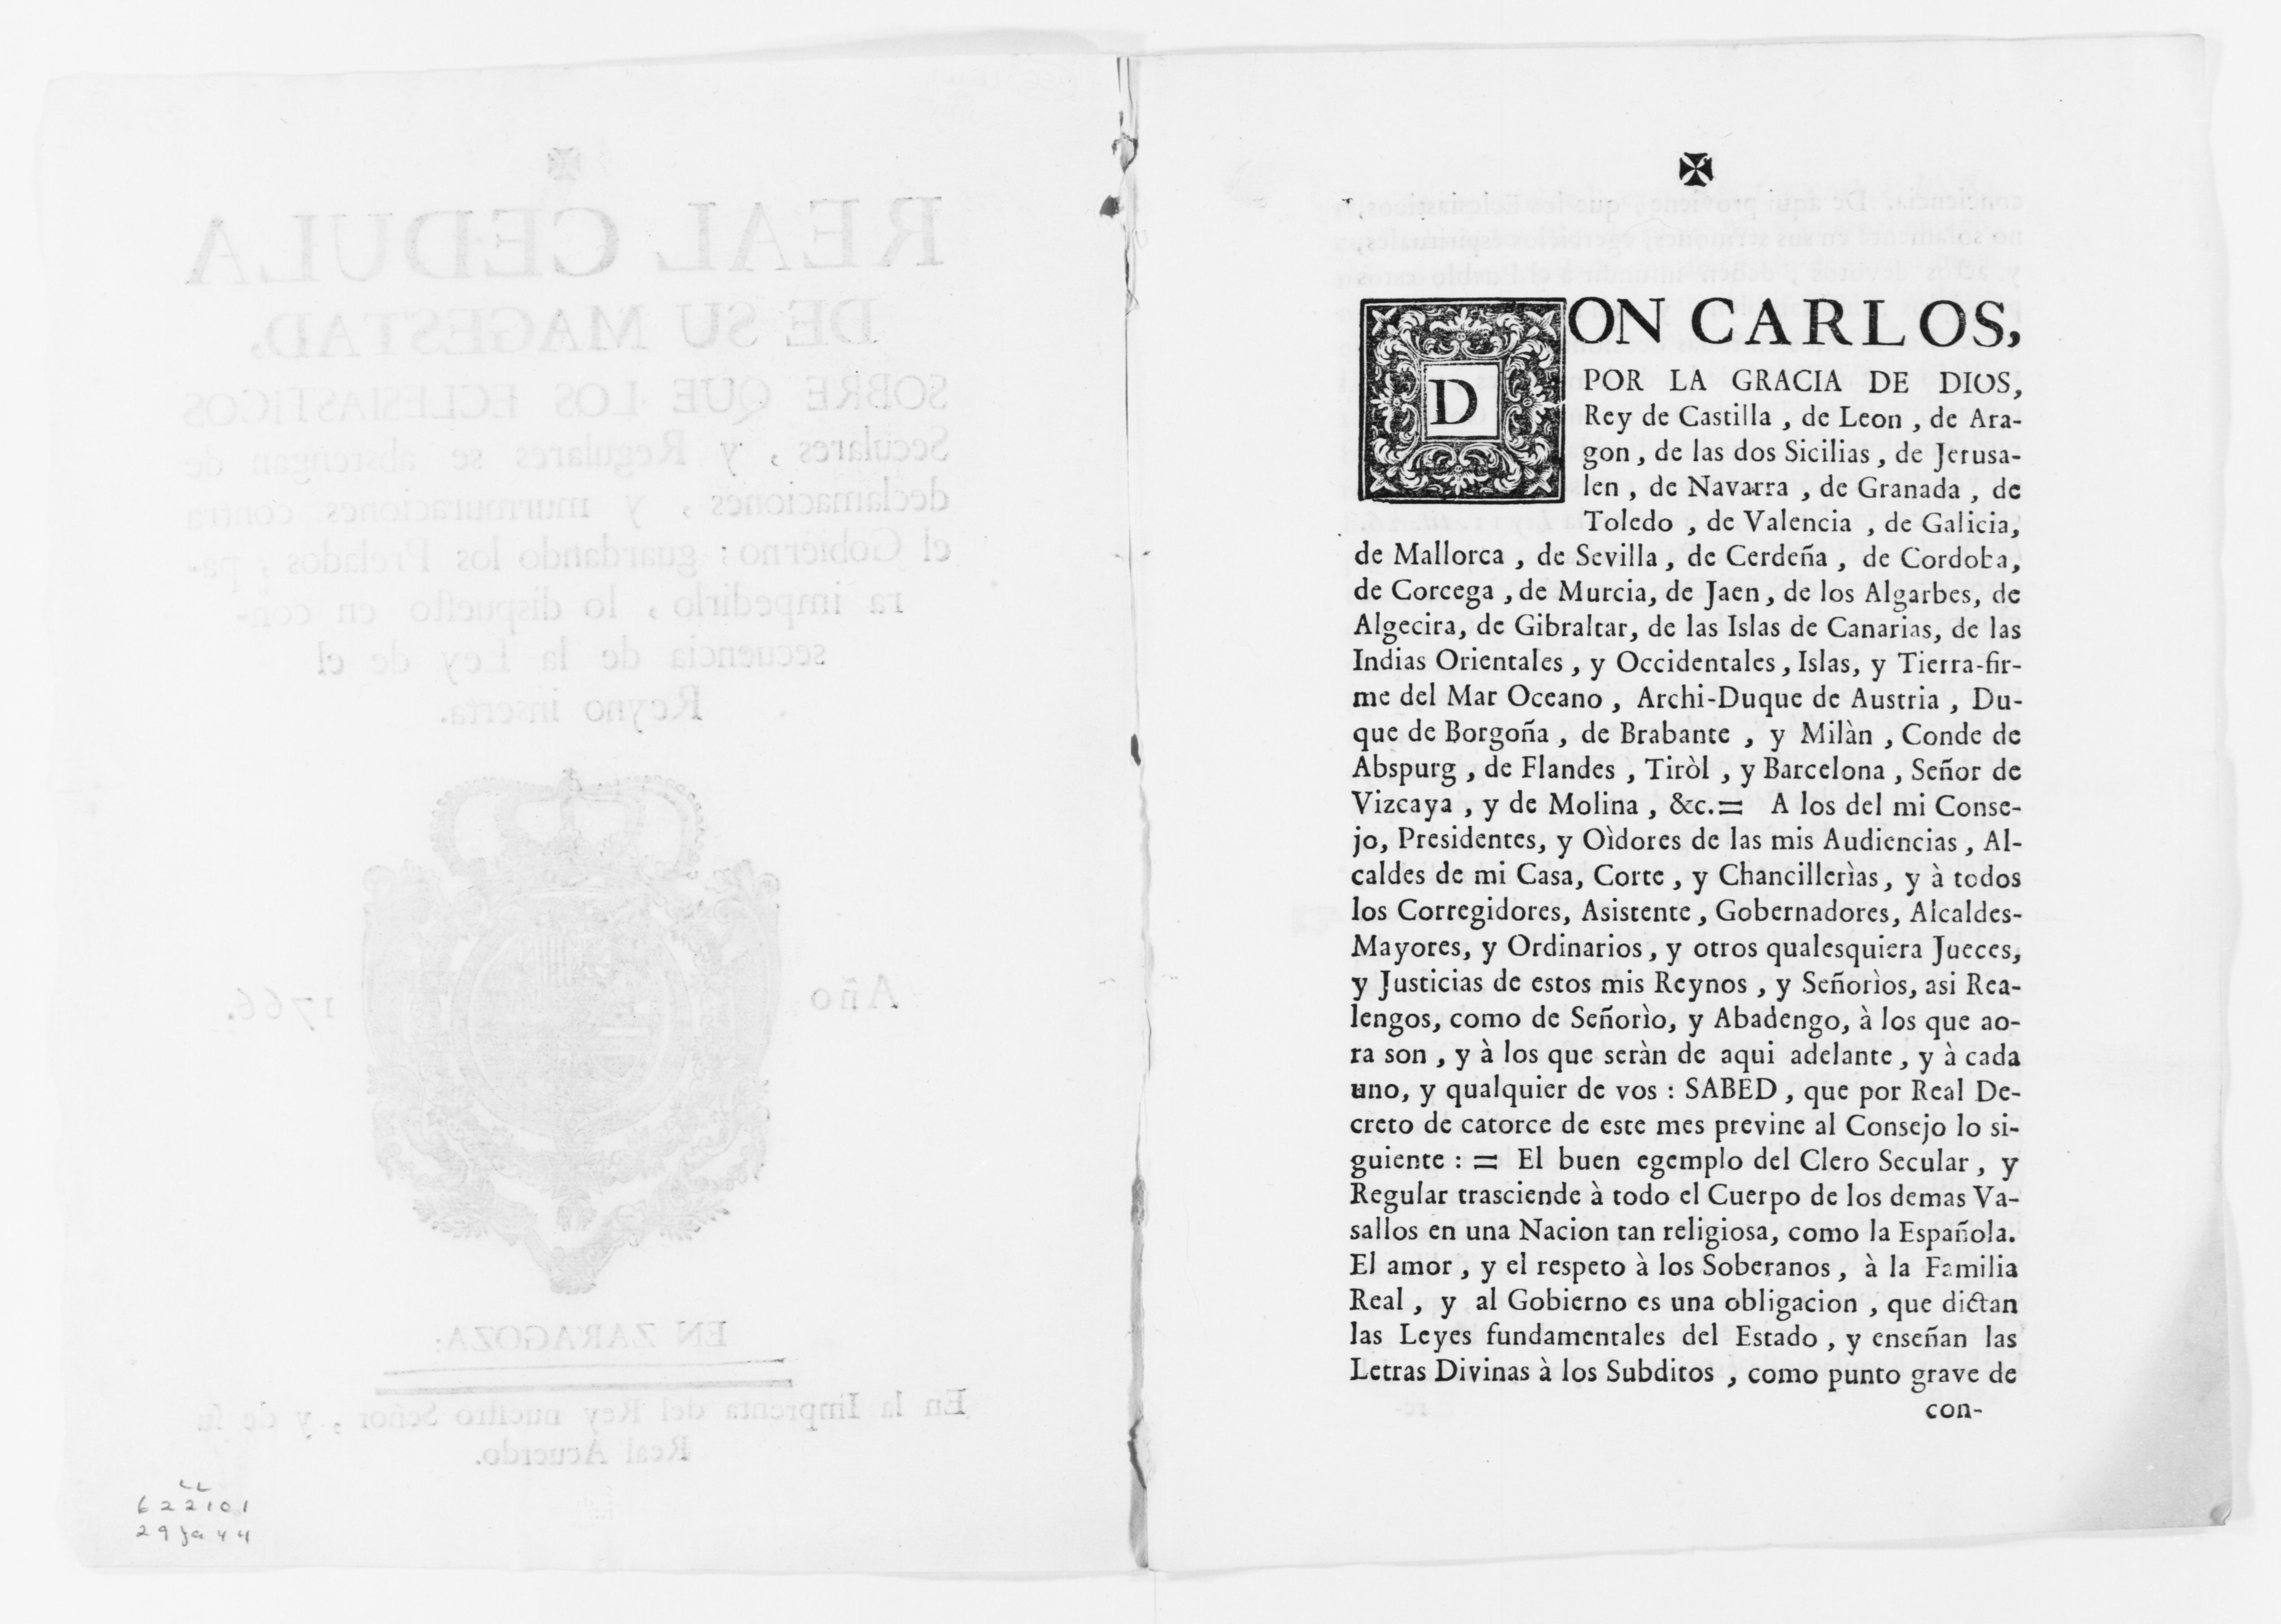 REAL CEDULA
DE SU MAGESTAD,
SOBRE QUE LOS ECLESIASTICOS
Seculares , y Regulares se abstengan de
declamaciones , y murmuraciones contra
el Gobierno : guardando los Prelados , pa-
ra impedirlo , lo dispuesto en con-
secuencia de la Ley de el
Reyno inserta.
Año 1766.
EN ZARAGOZA:
En la Imprenta del Rey nuestro Señor , y de su
Real Acuerdo.
622101
29 Ja 44
DON CARLOS,
POR LA GRACIA DE DIOS,
Rey de Castilla , de Leon , de Ara-
gon , de las dos Sicilias , de Jerusa-
len , de Navarra , de Granada , de
Toledo , de Valencia , de Galicia,
de Mallorca , de Sevilla , de Cerdeña , de Cordoba,
de Corcega , de Murcia, de Jaen , de los Algarbes, de
Algecira, de Gibraltar, de las Islas de Canarias, de las
Indias Orientales , y Occidentales , Islas, y Tierra-fir-
me del Mar Oceano , Archi-Duque de Austria , Du-
que de Borgoña , de Brabante , y Milàn , Conde de
Abspurg , de Flandes , Tiròl , y Barcelona , Señor de
Vizcaya , y de Molina , &c.= A los del mi Conse-
jo, Presidentes, y Oìdores de las mis Audiencias , Al-
caldes de mi Casa, Corte , y Chancillerìas, y à todos
los Corregidores, Asistente , Gobernadores, Alcaldes-
Mayores, y Ordinarios , y otros qualesquiera Jueces,
y Justicias de estos mis Reynos , y Señorìos, asi Rea-
lengos, como de Señorìo, y Abadengo, à los que ao-
ra son , y à los que seràn de aqui adelante , y à cada
uno, y qualquier de vos : SABED , que por Real De-
creto de catorce de este mes previne al Consejo lo si-
guiente : = El buen egemplo del Clero Secular , y
Regular trasciende à todo el Cuerpo de los demas Va-
sallos en una Nacion tan religiosa, como la Española.
El amor , y el respeto à los Soberanos , à la Familia
Real , y al Gobierno es una obligacion , que dictan
las Leyes fundamentales del Estado , y enseñan las
Letras Divinas à los Subditos , como punto grave de
con-